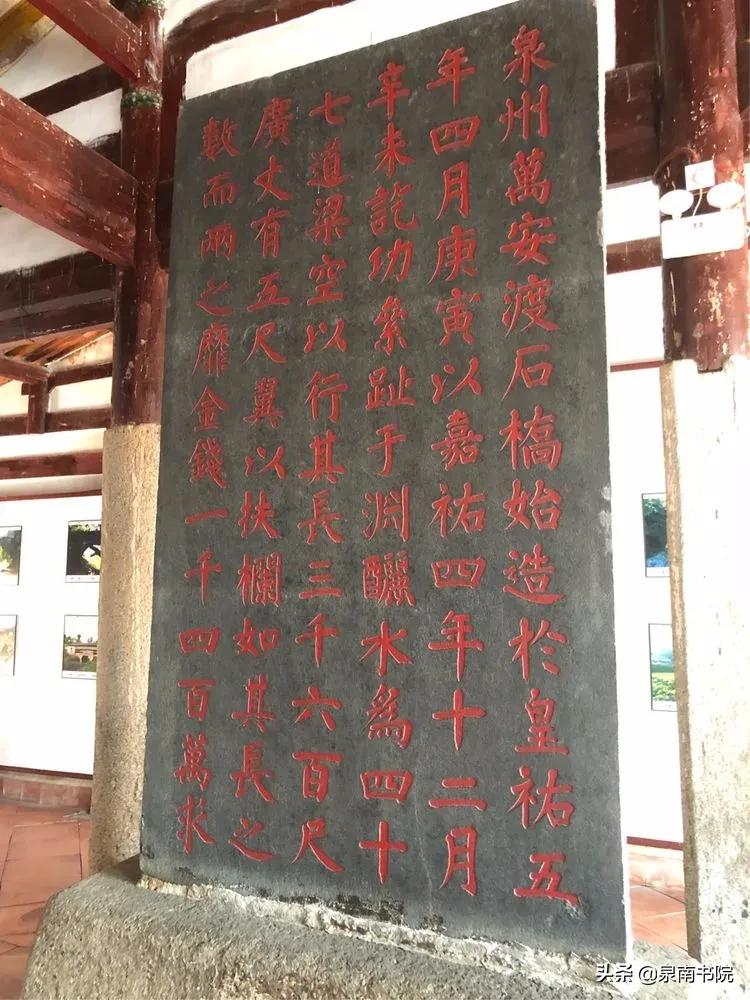 泉州萬安渡石橋始造於皇祐五
年四月庚寅以嘉祐四年十二月
辛未訖功絫趾于淵釃水為四十
七道梁空以行其長三千六百尺
廣丈有五尺翼以扶欄如其長之
數而兩之靡金錢一千四百萬求
头条 @泉南书院